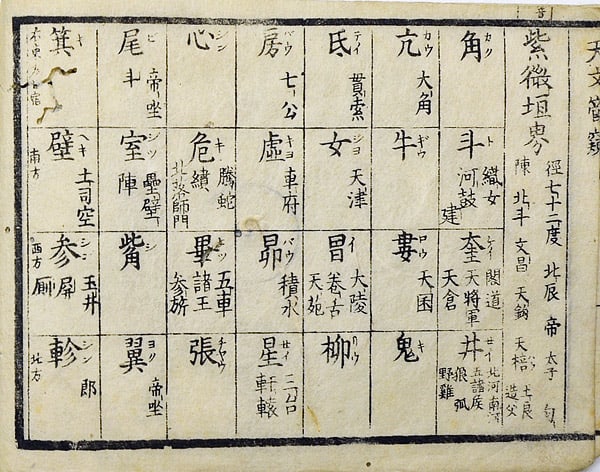 天文管窺
紫微垣界
徑七十二度 北辰 帝 太子 勾
陳 北斗 文昌 天鉤 天棓 王良
造父
角 カク
亢 カウ 大角
氐 テイ 貫索
房 バウ 七公
心 シン
尾 ビ 斗 帝坐
箕 キ
斗 ト 織女
河鼓
建
牛 ギウ
女 ジヨ 天津
虚 キヨ 車府
危 キ 騰蛇
績
北落師門
室 シツ 壘壁
陣
壁 ヘキ 土司空
南方
奎 ケイ 閣道
天將軍
天倉
婁 ロウ 天囷
胃 イ 大陵
卷舌
天苑
昴 バウ 積水
畢 ヒツ 五車
諸王
参旂
觜 シ
参 シン 玉井
屏
厠
西方
井 セイ 北河 南河
五諸侯
狼 弧
野雞
鬼 キ
柳 リウ
星 セイ
軒轅
張 チヤウ
翼 ヨク 帝坐
軫 シン 郎
北方